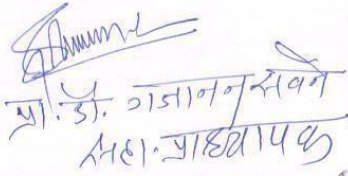 प्रा. डॉ. गजानन सवने
सहा. प्राध्यापक